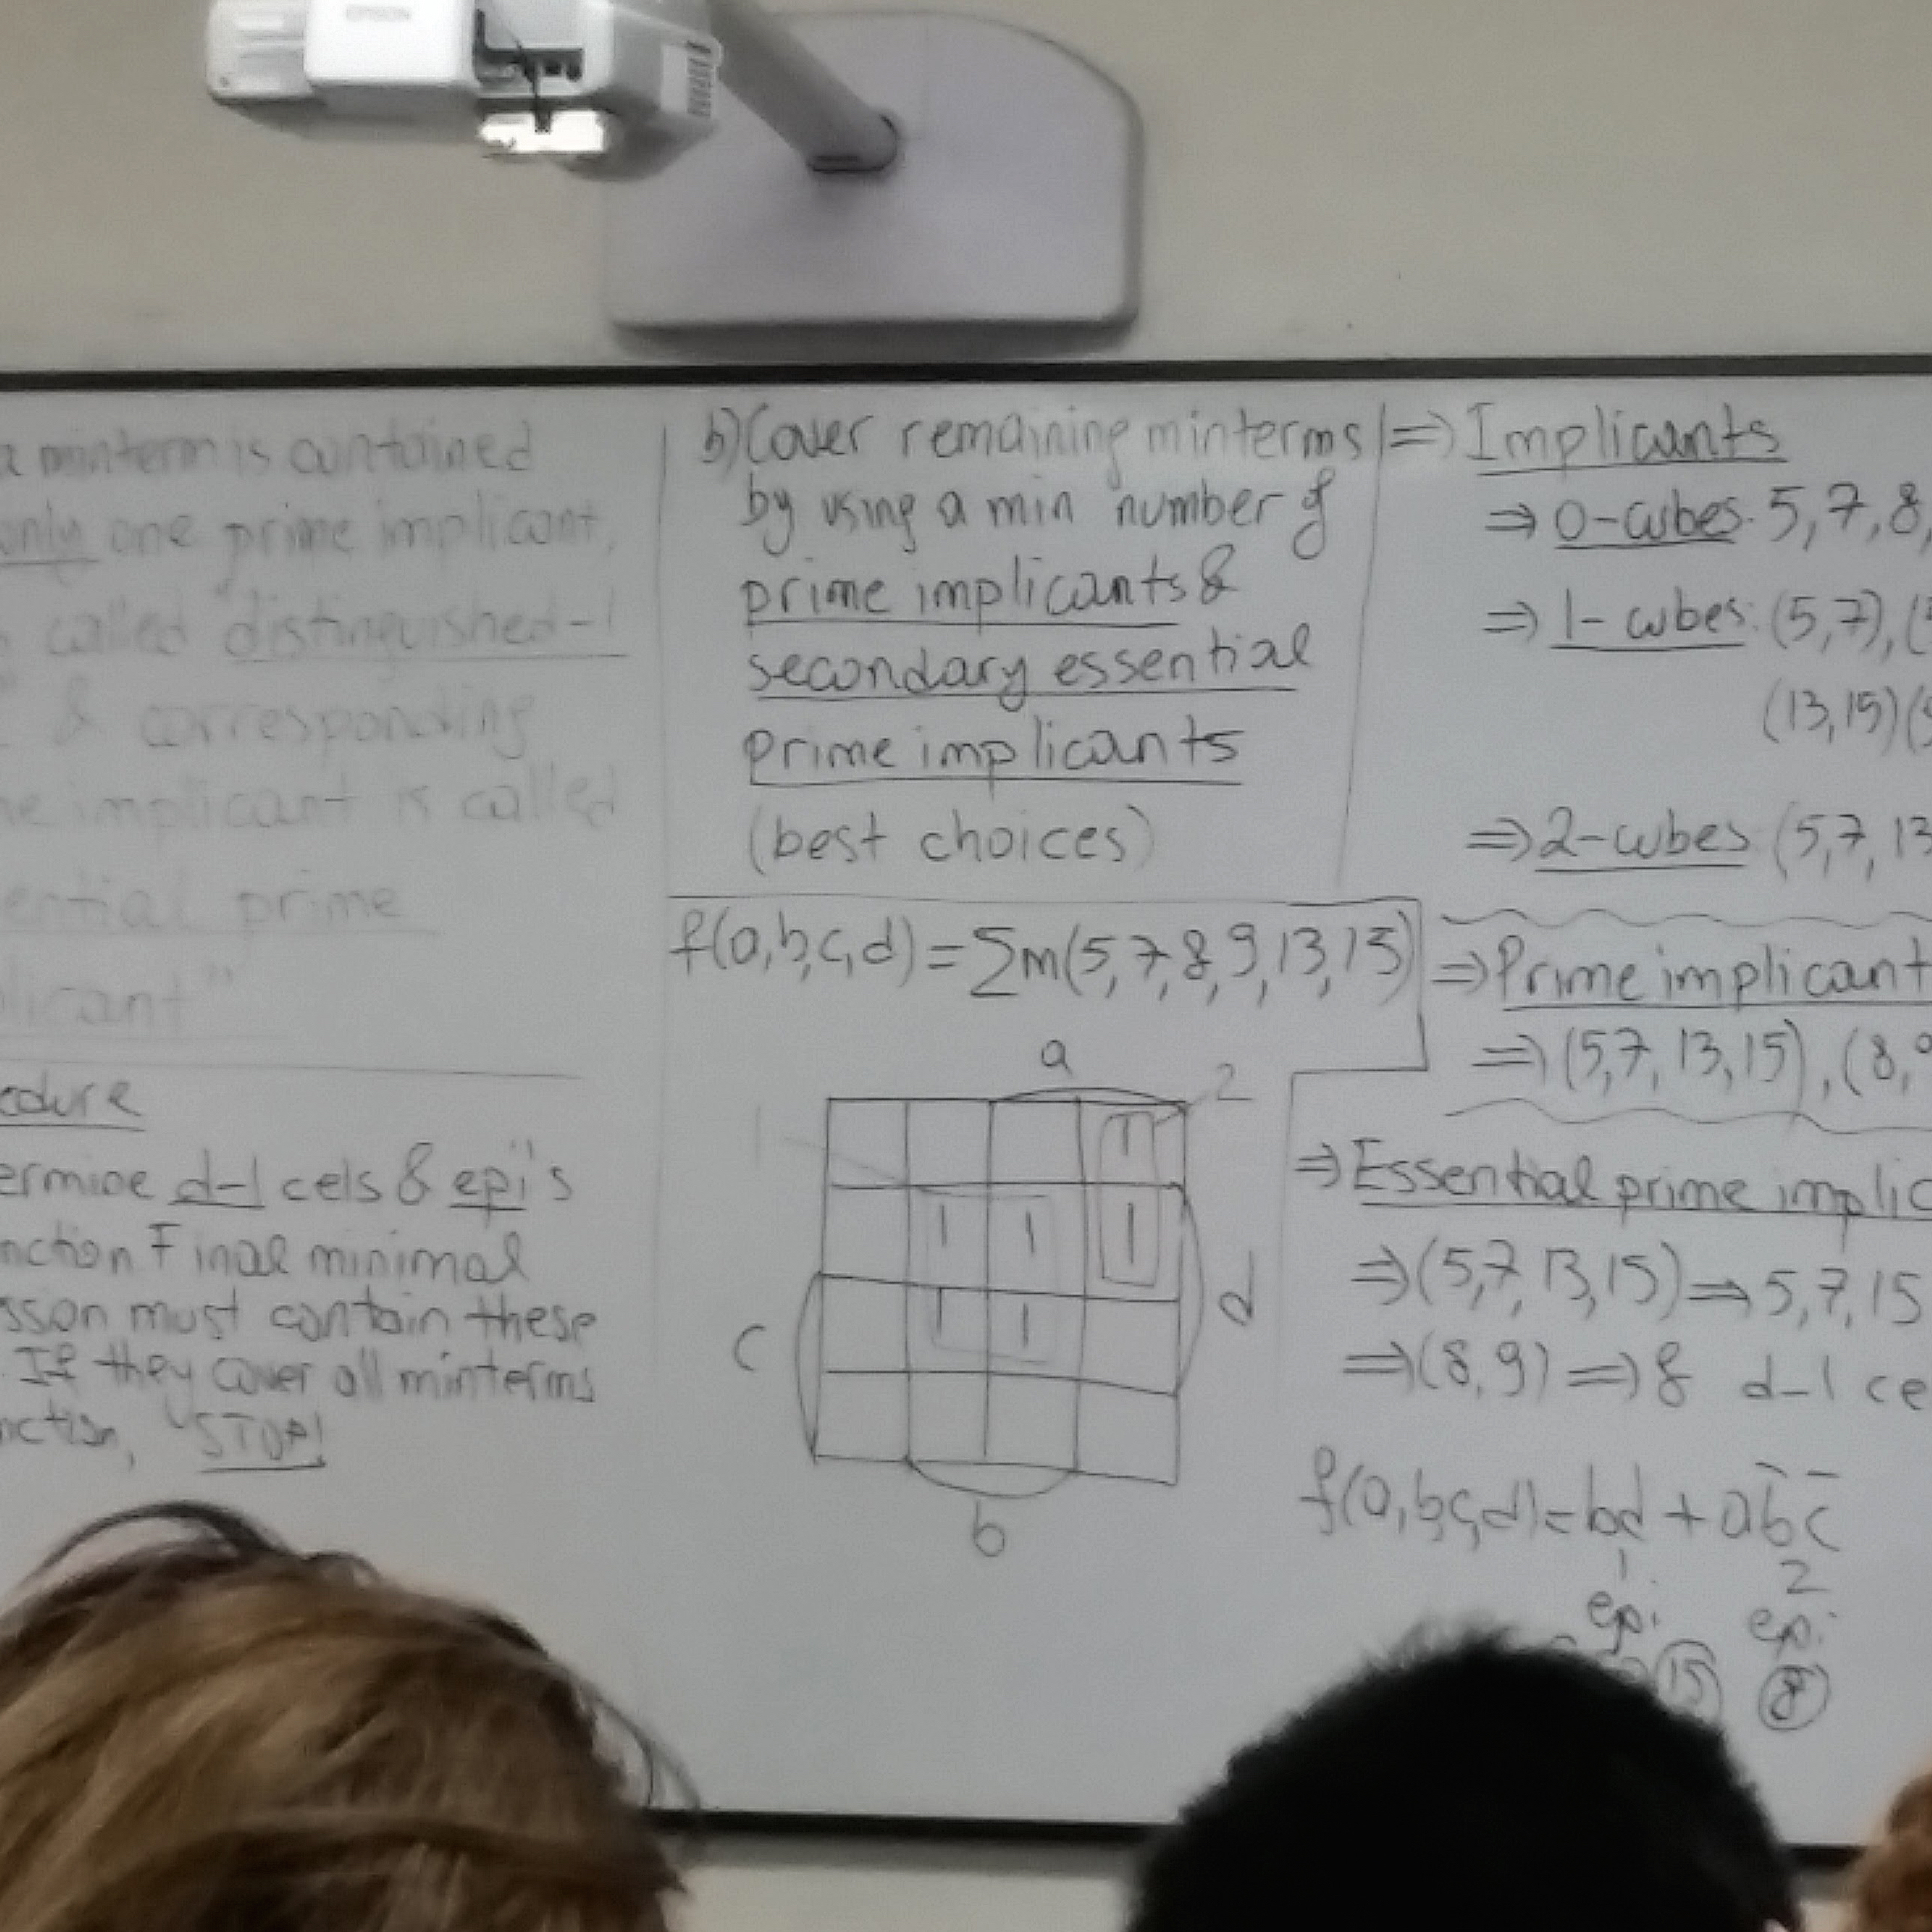 EPSON
a minterm is contained
only one prime implicant,
called "distinguished-1
" & corresponding
implicant is called
ential prime
licant"
edure
ermine d-1 cels & epi's
nction Final minimal
sson must contain these
. If they cover all minterms
nction, "STOP!
b) Cover remaining minterms
by using a min number of
prime implicants &
secondary essential
prime implicants
(best choices)
f(a,b,c,d) = ∑m(5,7,8,9,13,15)
a
1
2
1
1 1 1
1 1
c
d
b
⇒ Implicants
⇒ 0-cubes. 5,7,8,
⇒ 1-cubes: (5,7), (
(13,15) (
⇒ 2-cubes (5,7,13
⇒ Prime implicant
⇒ (5,7,13,15), (8,9
⇒ Essential prime implic
⇒ (5,7,13,15) ⇒ 5,7,15
⇒ (8,9) ⇒ 8 d-1 ce
f(a,b,c,d) = bd + ab̅c̅
1 2
epi epi
15 8